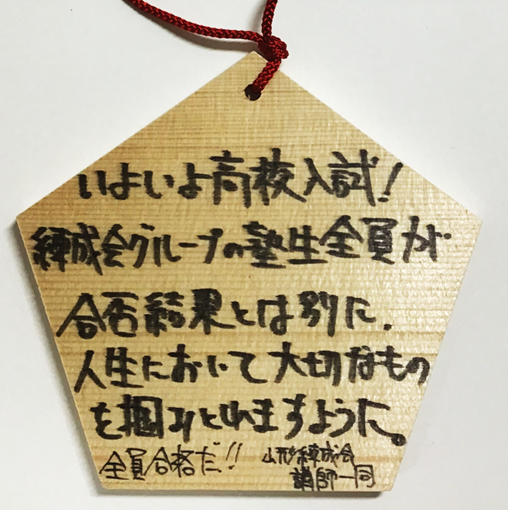 いよいよ高校入試!
練成会グループの塾生全員が
合否結果とは別に、
人生において大切なもの
を掴みとれますように。
全員合格だ!! 山形練成会
講師一同